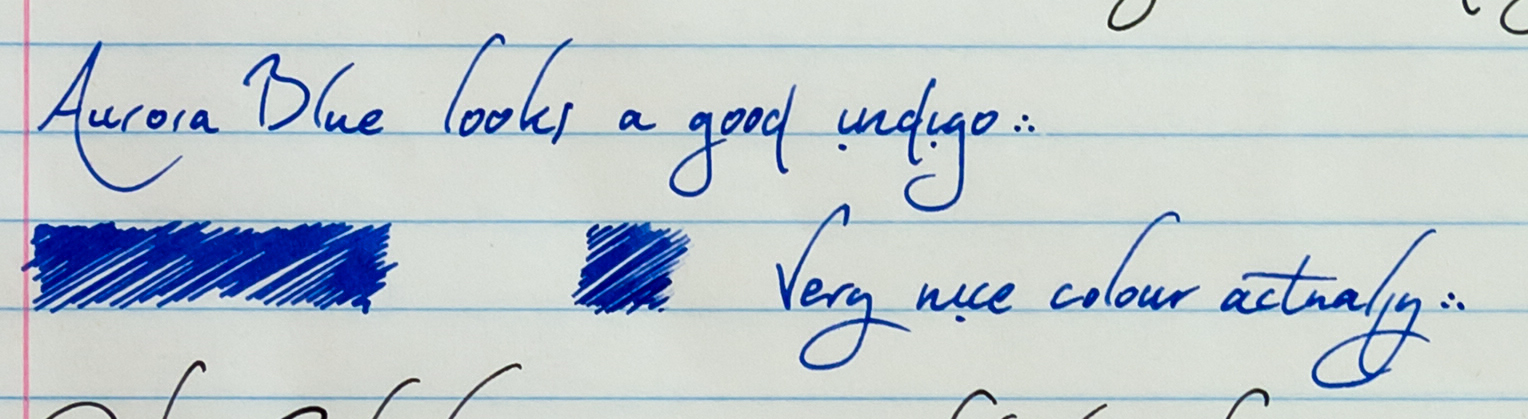 Aurora Blue looks a good indigo∴
Very nice colour actually∴